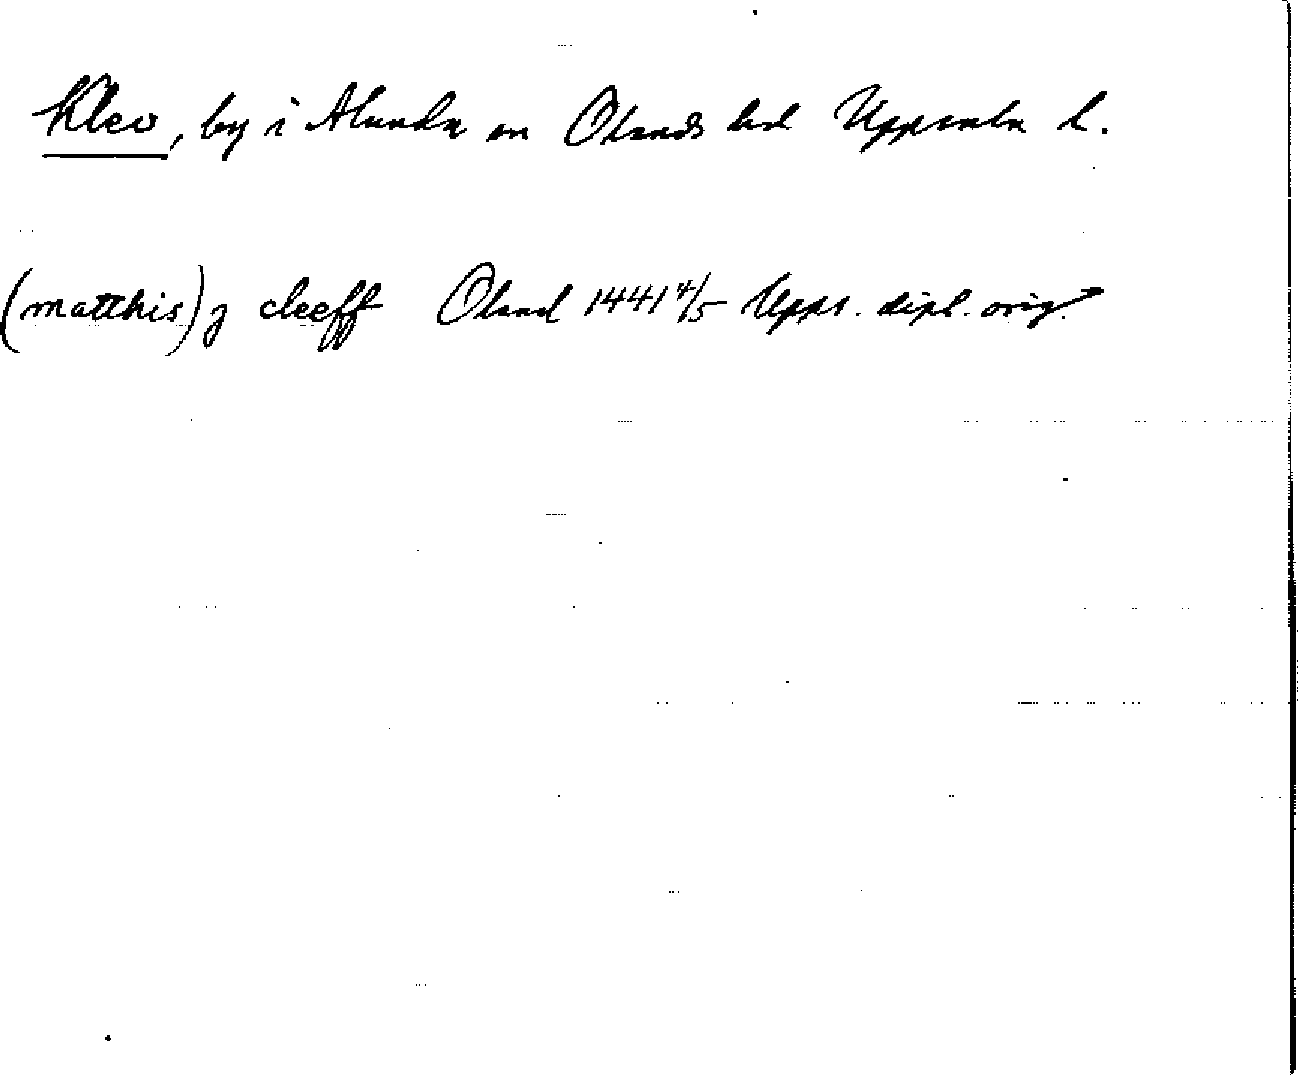 Klev, by i Alunda sn Olands hd Uppsala l.
(matthis) j cleeff Oland 1441 4/5 Upps. dipl. orig.